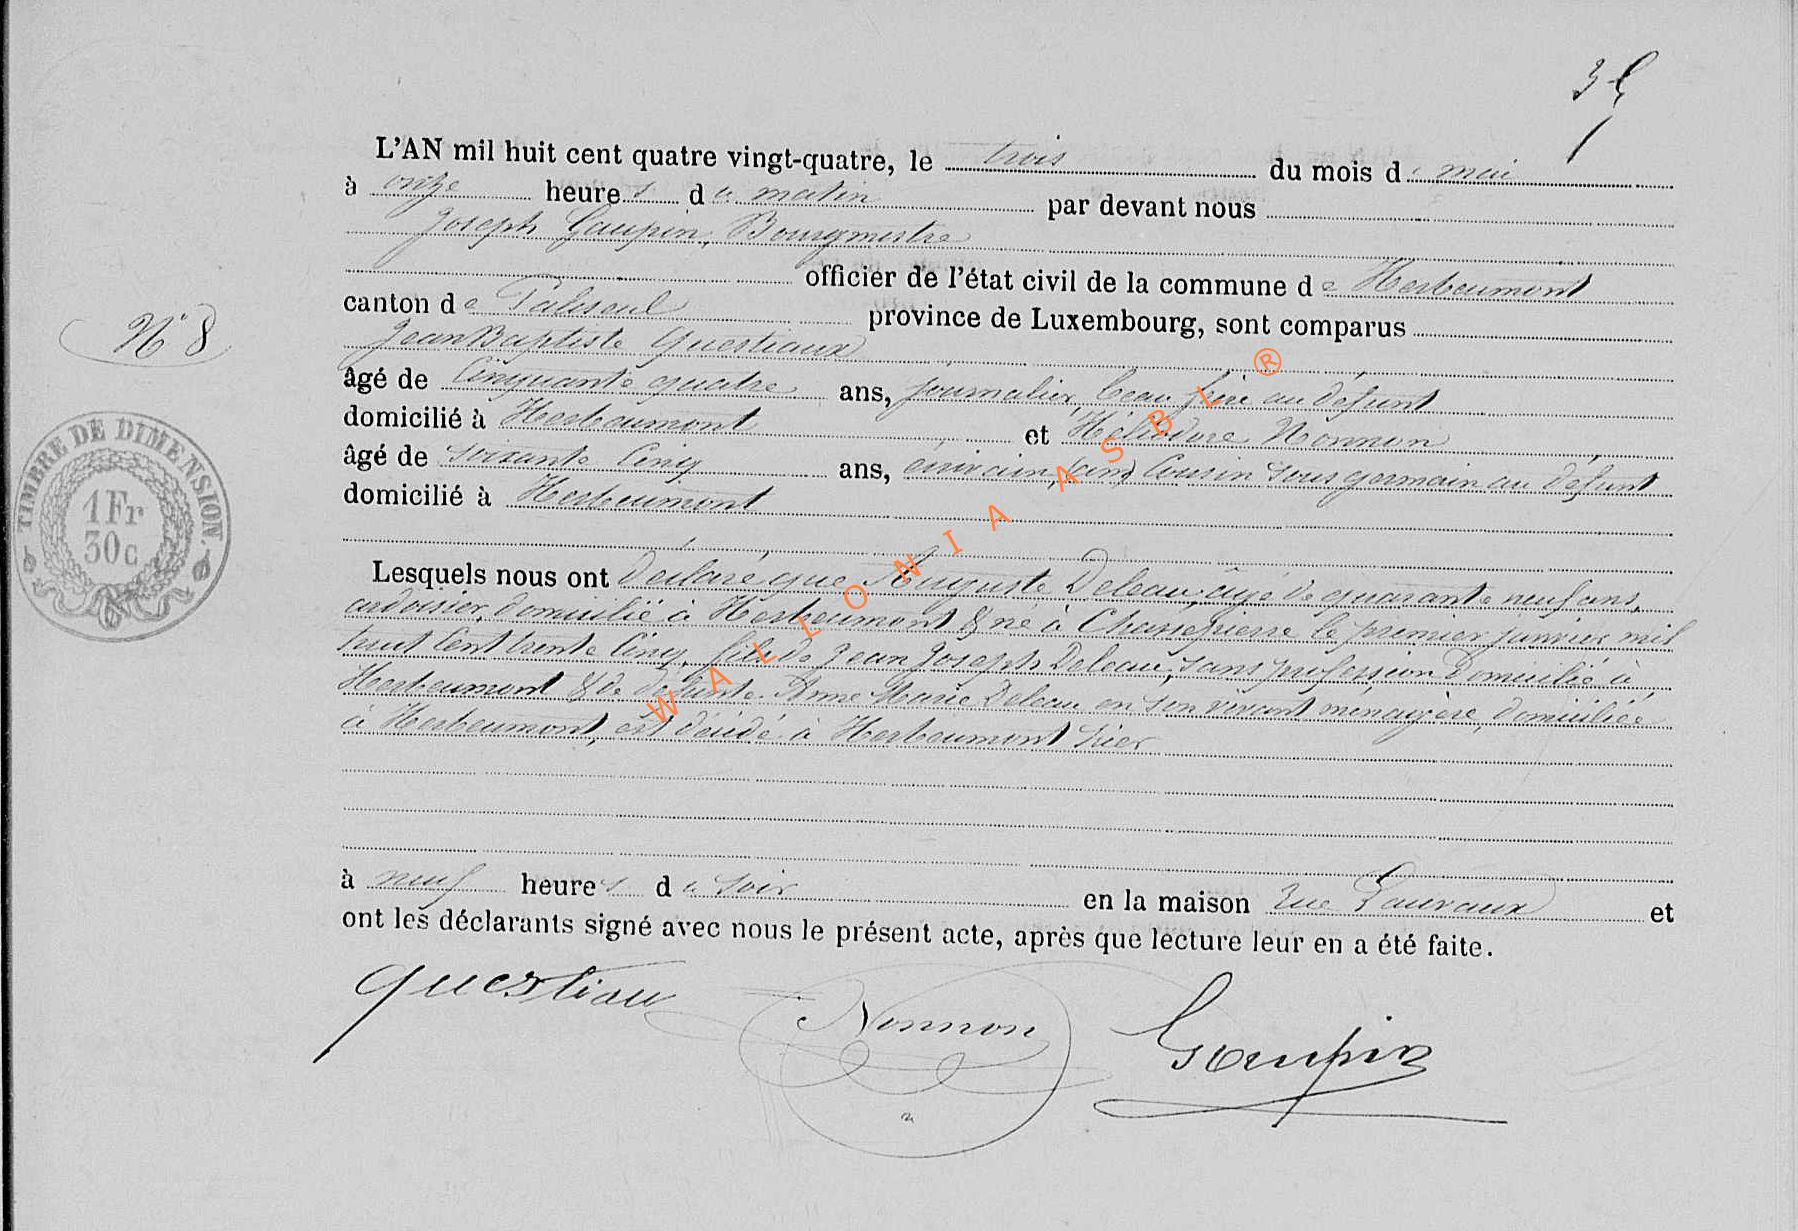 35
L'AN mil huit cent quatre vingt-quatre, le trois du mois de mai
à onze heures du matin par devant nous
Joseph Gaupin, Bourgmestre
officier de l'état civil de la commune de Herbeumont
canton de Paliseul province de Luxembourg, sont comparus
Jean Baptiste Questiaux
âgé de Cinquante quatre ans, journalier, beau frère au défunt
domicilié à Herbeumont et Héliodore Nonnon
âgé de soixante Cinq ans, Cousin sous germain au défunt
domicilié à Herbeumont
Lesquels nous ont déclaré que Auguste Deleau, âgé de quarante neuf ans,
ardoisier, domicilié à Herbeumont & né à Chassepierre le premier janvier mil
huit Cent trente Cinq, fils de Jean Joseph Deleau, sans profession domicilié à
Herbeumont & de défunte Anne Marie Deleau en son vivant ménagère, domiciliée
à Herbeumont, est décédé à Herbeumont hier
à neuf heures du soir en la maison rue Lauvaux et
ont les déclarants signé avec nous le présent acte, après que lecture leur en a été faite.
Questiau Nonnon Gaupin
N° 8
TIMBRE DE DIMENSION.
1 Fr
30 c
WALLONIA ASBL ®